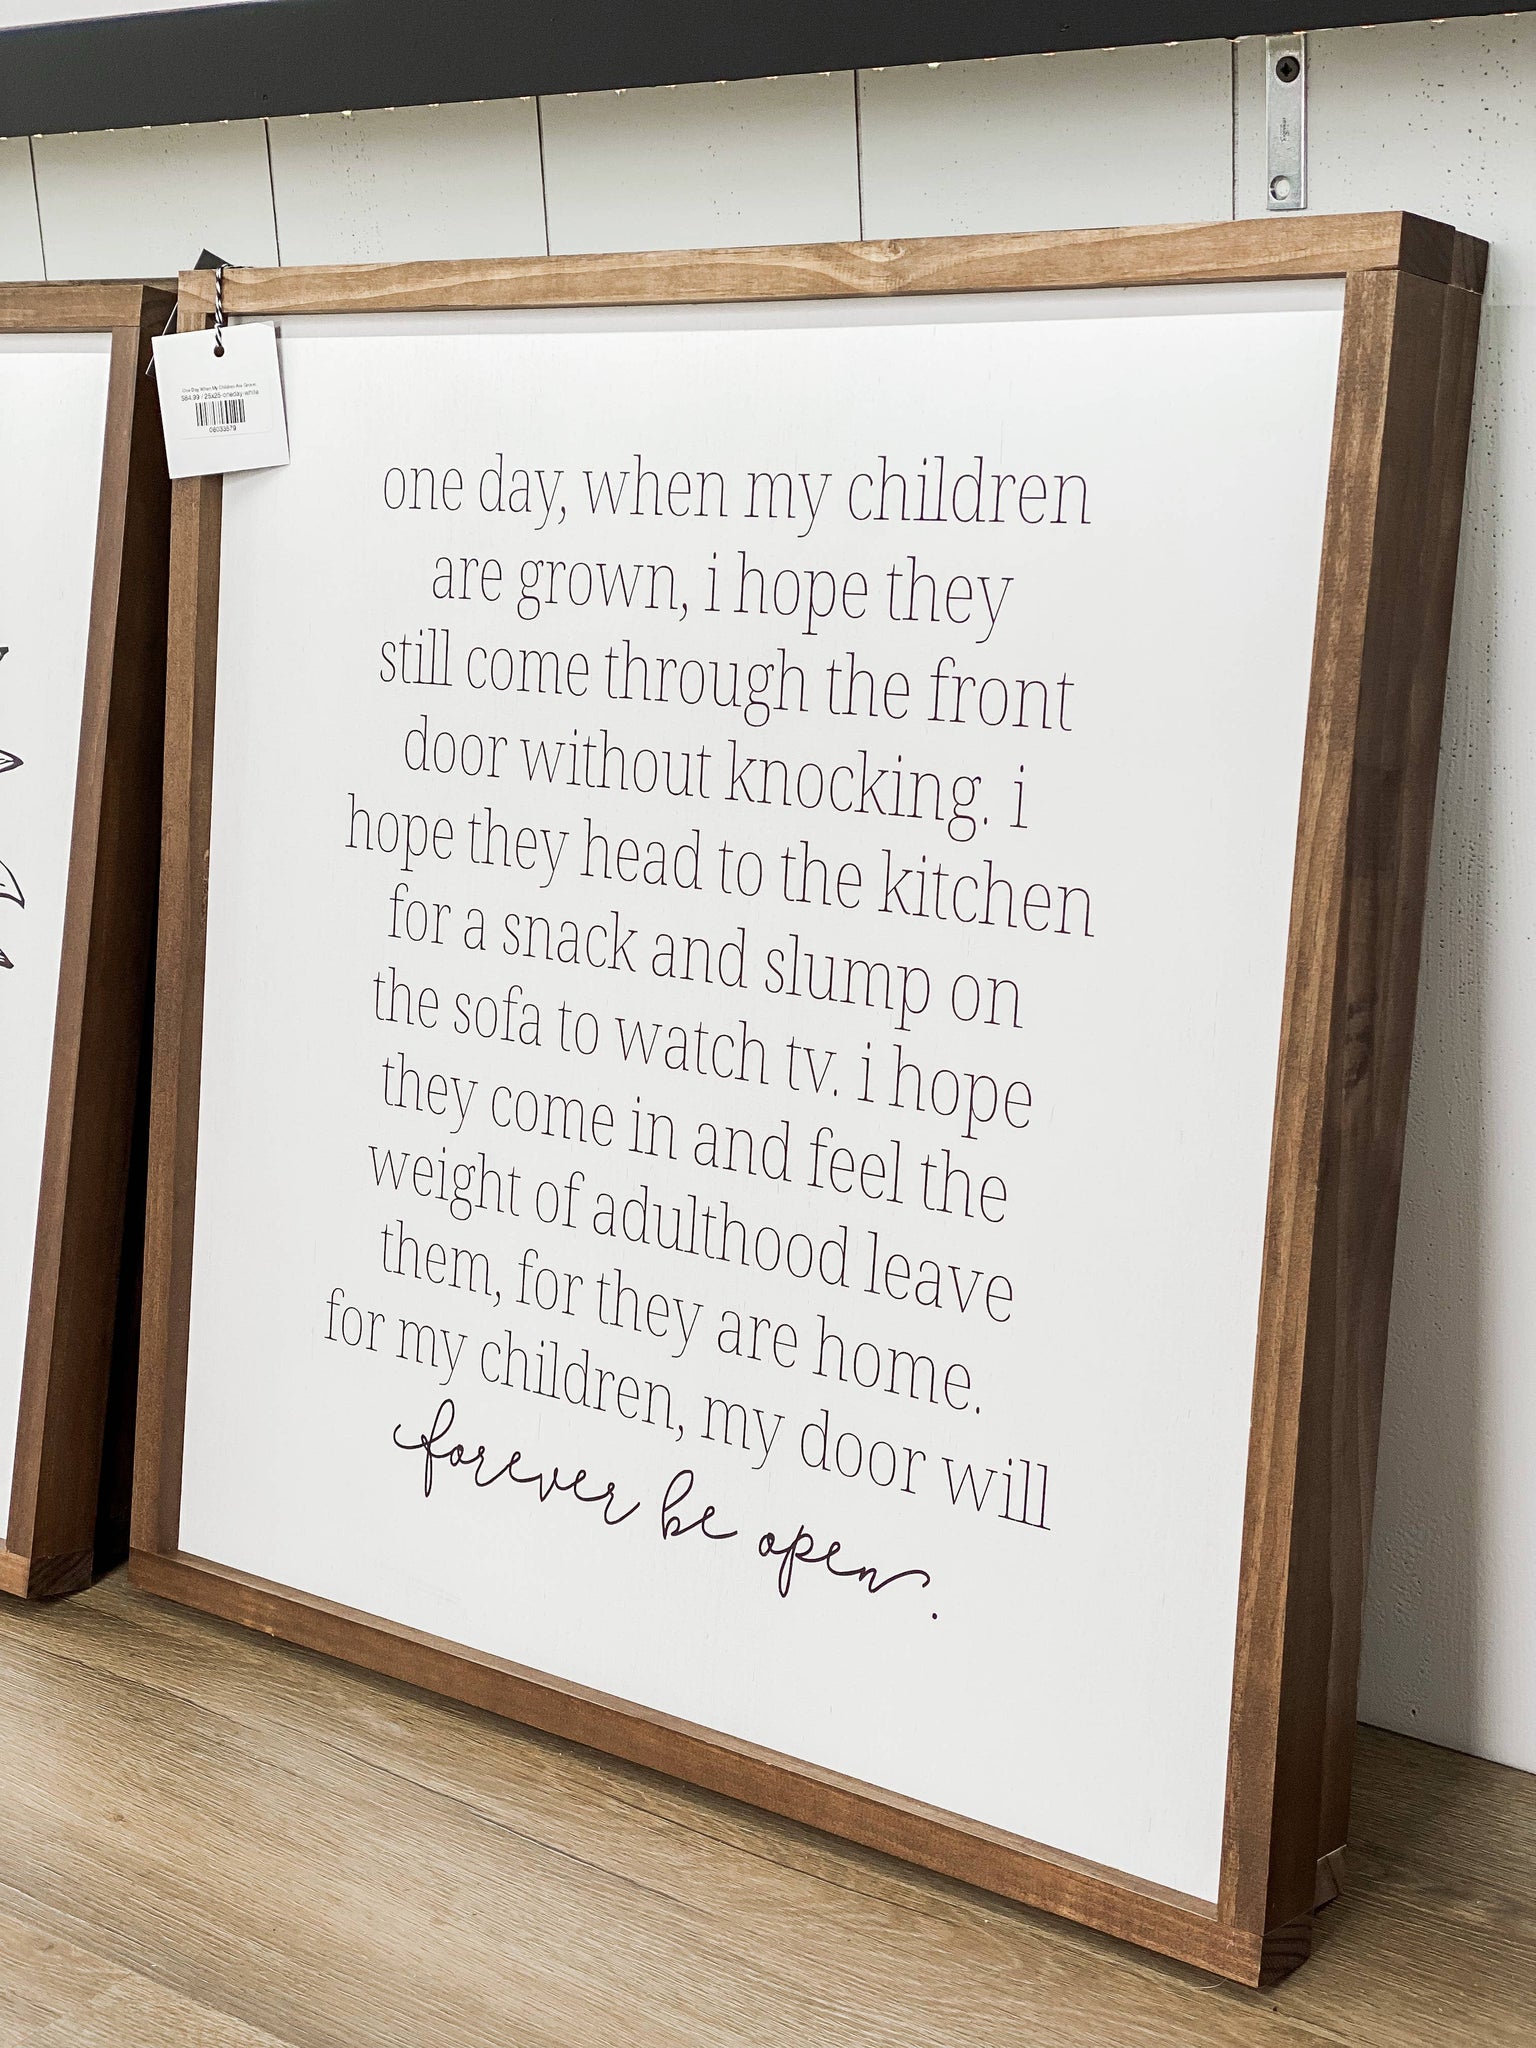 One Day When My Children Are Grown,
$84.99 / 25x25-oneday-white
08033579
one day, when my children
are grown, i hope they
still come through the front
door without knocking. i
hope they head to the kitchen
for a snack and slump on
the sofa to watch tv. i hope
they come in and feel the
weight of adulthood leave
them, for they are home.
for my children, my door will
forever be open.